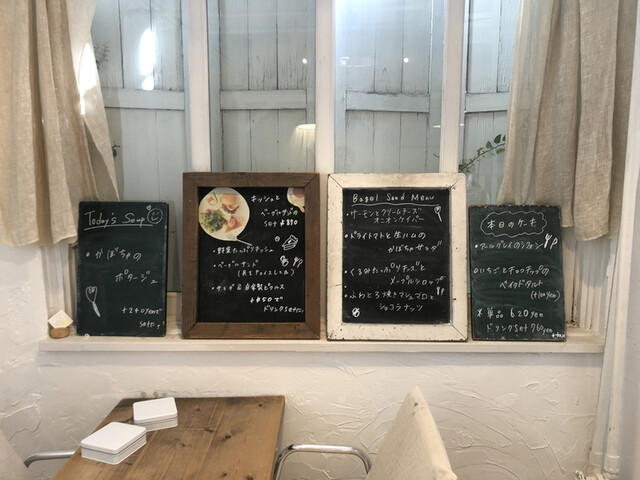 Today's Soup
・かぼちゃの
ポタージュ
+240yenで
setに♪
キッシュと
ベーグルサンドの
set ¥890
・野菜たっぷりキッシュ
・ベーグルサンド
・サラダ & 自家製ピクルス
+¥50で
ドリンクsetに♪
Bagel Sand Menu
・サーモンとクリームチーズ
オニオンケイパー
・ドライトマトと生ハムの
かぼちゃサラダ
・くるみたっぷりチーズと
メープルシロップ
・ふわとろ焼きマシュマロと
ショコラナッツ
本日のケーキ
・アールグレイのシフォン
・いちごとチョコチップの
ベイクドタルト
※単品 620yen
ドリンクset 960yen